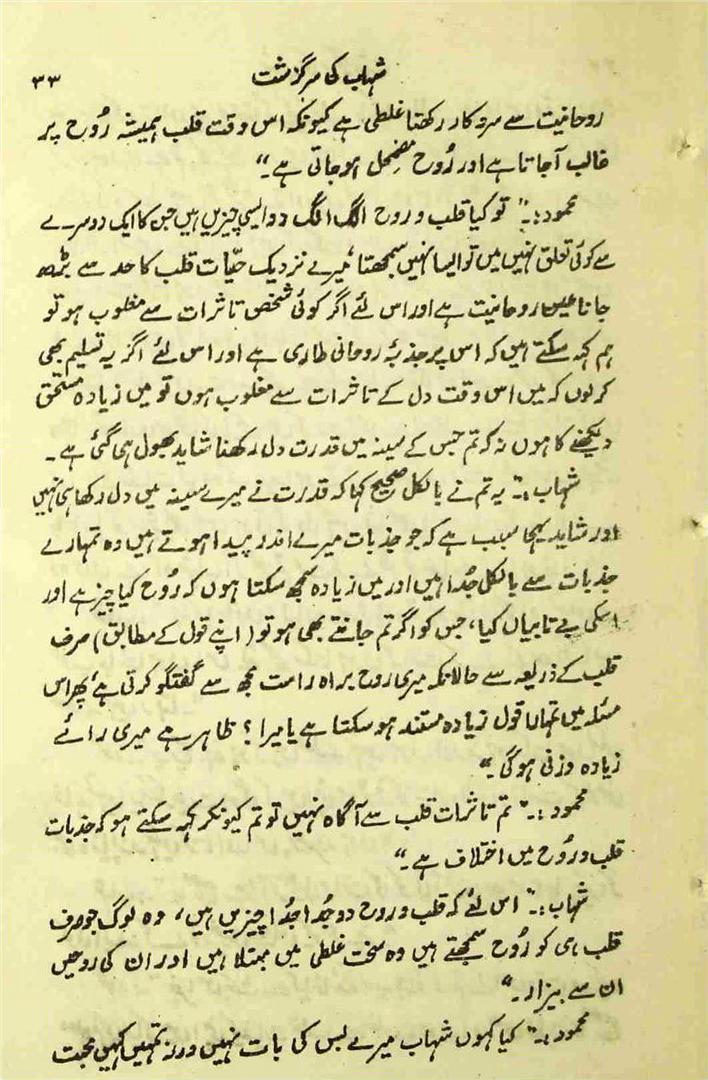 شہاب کی سرگزشت ۳۳
روحانیت سے سروکار رکھتا غلطی ہے کیونکہ اس وقت قلب ہمیشہ رُوح پر
غالب آجاتا ہے اور رُوح مضمحل ہو جاتی ہے۔"
محمود:۔" تو کیا قلب و روح الگ الگ دو ایسی چیزیں ہیں جن کا ایک دوسرے
سے کوئی تعلق نہیں میں تو ایسا نہیں سمجھتا، میرے نزدیک حیّات قلب کا حد سے بڑھ
جانا عین روحانیت ہے اور اس لئے اگر کوئی شخص تاثرات سے مغلوب ہو تو
ہم کہہ سکتے ہیں کہ اس پر جذبۂ روحانی طاری ہے اور اس لئے اگر یہ تسلیم بھی
کر لوں کہ میں اس وقت دل کے تاثرات سے مغلوب ہوں تو میں زیادہ مستحق
دیکھنے کا ہوں نہ کہ تم جس کے سینہ میں قدرت دل رکھنا شاید بھول ہی گئی ہے۔
شہاب:۔" یہ تم نے بالکل صحیح کہا کہ قدرت نے میرے سینہ میں دل رکھا ہی نہیں
اور شاید یہی سبب ہے کہ جو جذبات میرے اندر پیدا ہوتے ہیں وہ تمہارے
جذبات سے بالکل جُدا ہیں اور میں زیادہ سمجھ سکتا ہوں کہ رُوح کیا چیز ہے اور
اسکی بے تابیاں کیا، جس کو اگر تم جانتے بھی ہو تو (اپنے قول کے مطابق) صرف
قلب کے ذریعہ سے حالانکہ میری روح براہ راست مجھ سے گفتگو کرتی ہے، پھر اس
مسئلہ میں تمہارا قول زیادہ مستند ہو سکتا ہے یا میرا ؟ ظاہر ہے میری رائے
زیادہ وزنی ہوگی۔"
محمود:۔" تم تاثرات قلب سے آگاہ نہیں تو تم کیونکر کہہ سکتے ہو کہ جذبات
قلب و رُوح میں اختلاف ہے۔"
شہاب:۔" اس لئے کہ قلب و روح دو جُدا جُدا چیزیں ہیں، وہ لوگ جو صرف
قلب ہی کو رُوح سمجھتے ہیں وہ سخت غلطی میں مبتلا ہیں اور ان کی روحیں
ان سے بیزار۔"
محمود:۔" کیا کہوں شہاب میرے بس کی بات نہیں ورنہ تمہیں کہیں محبت